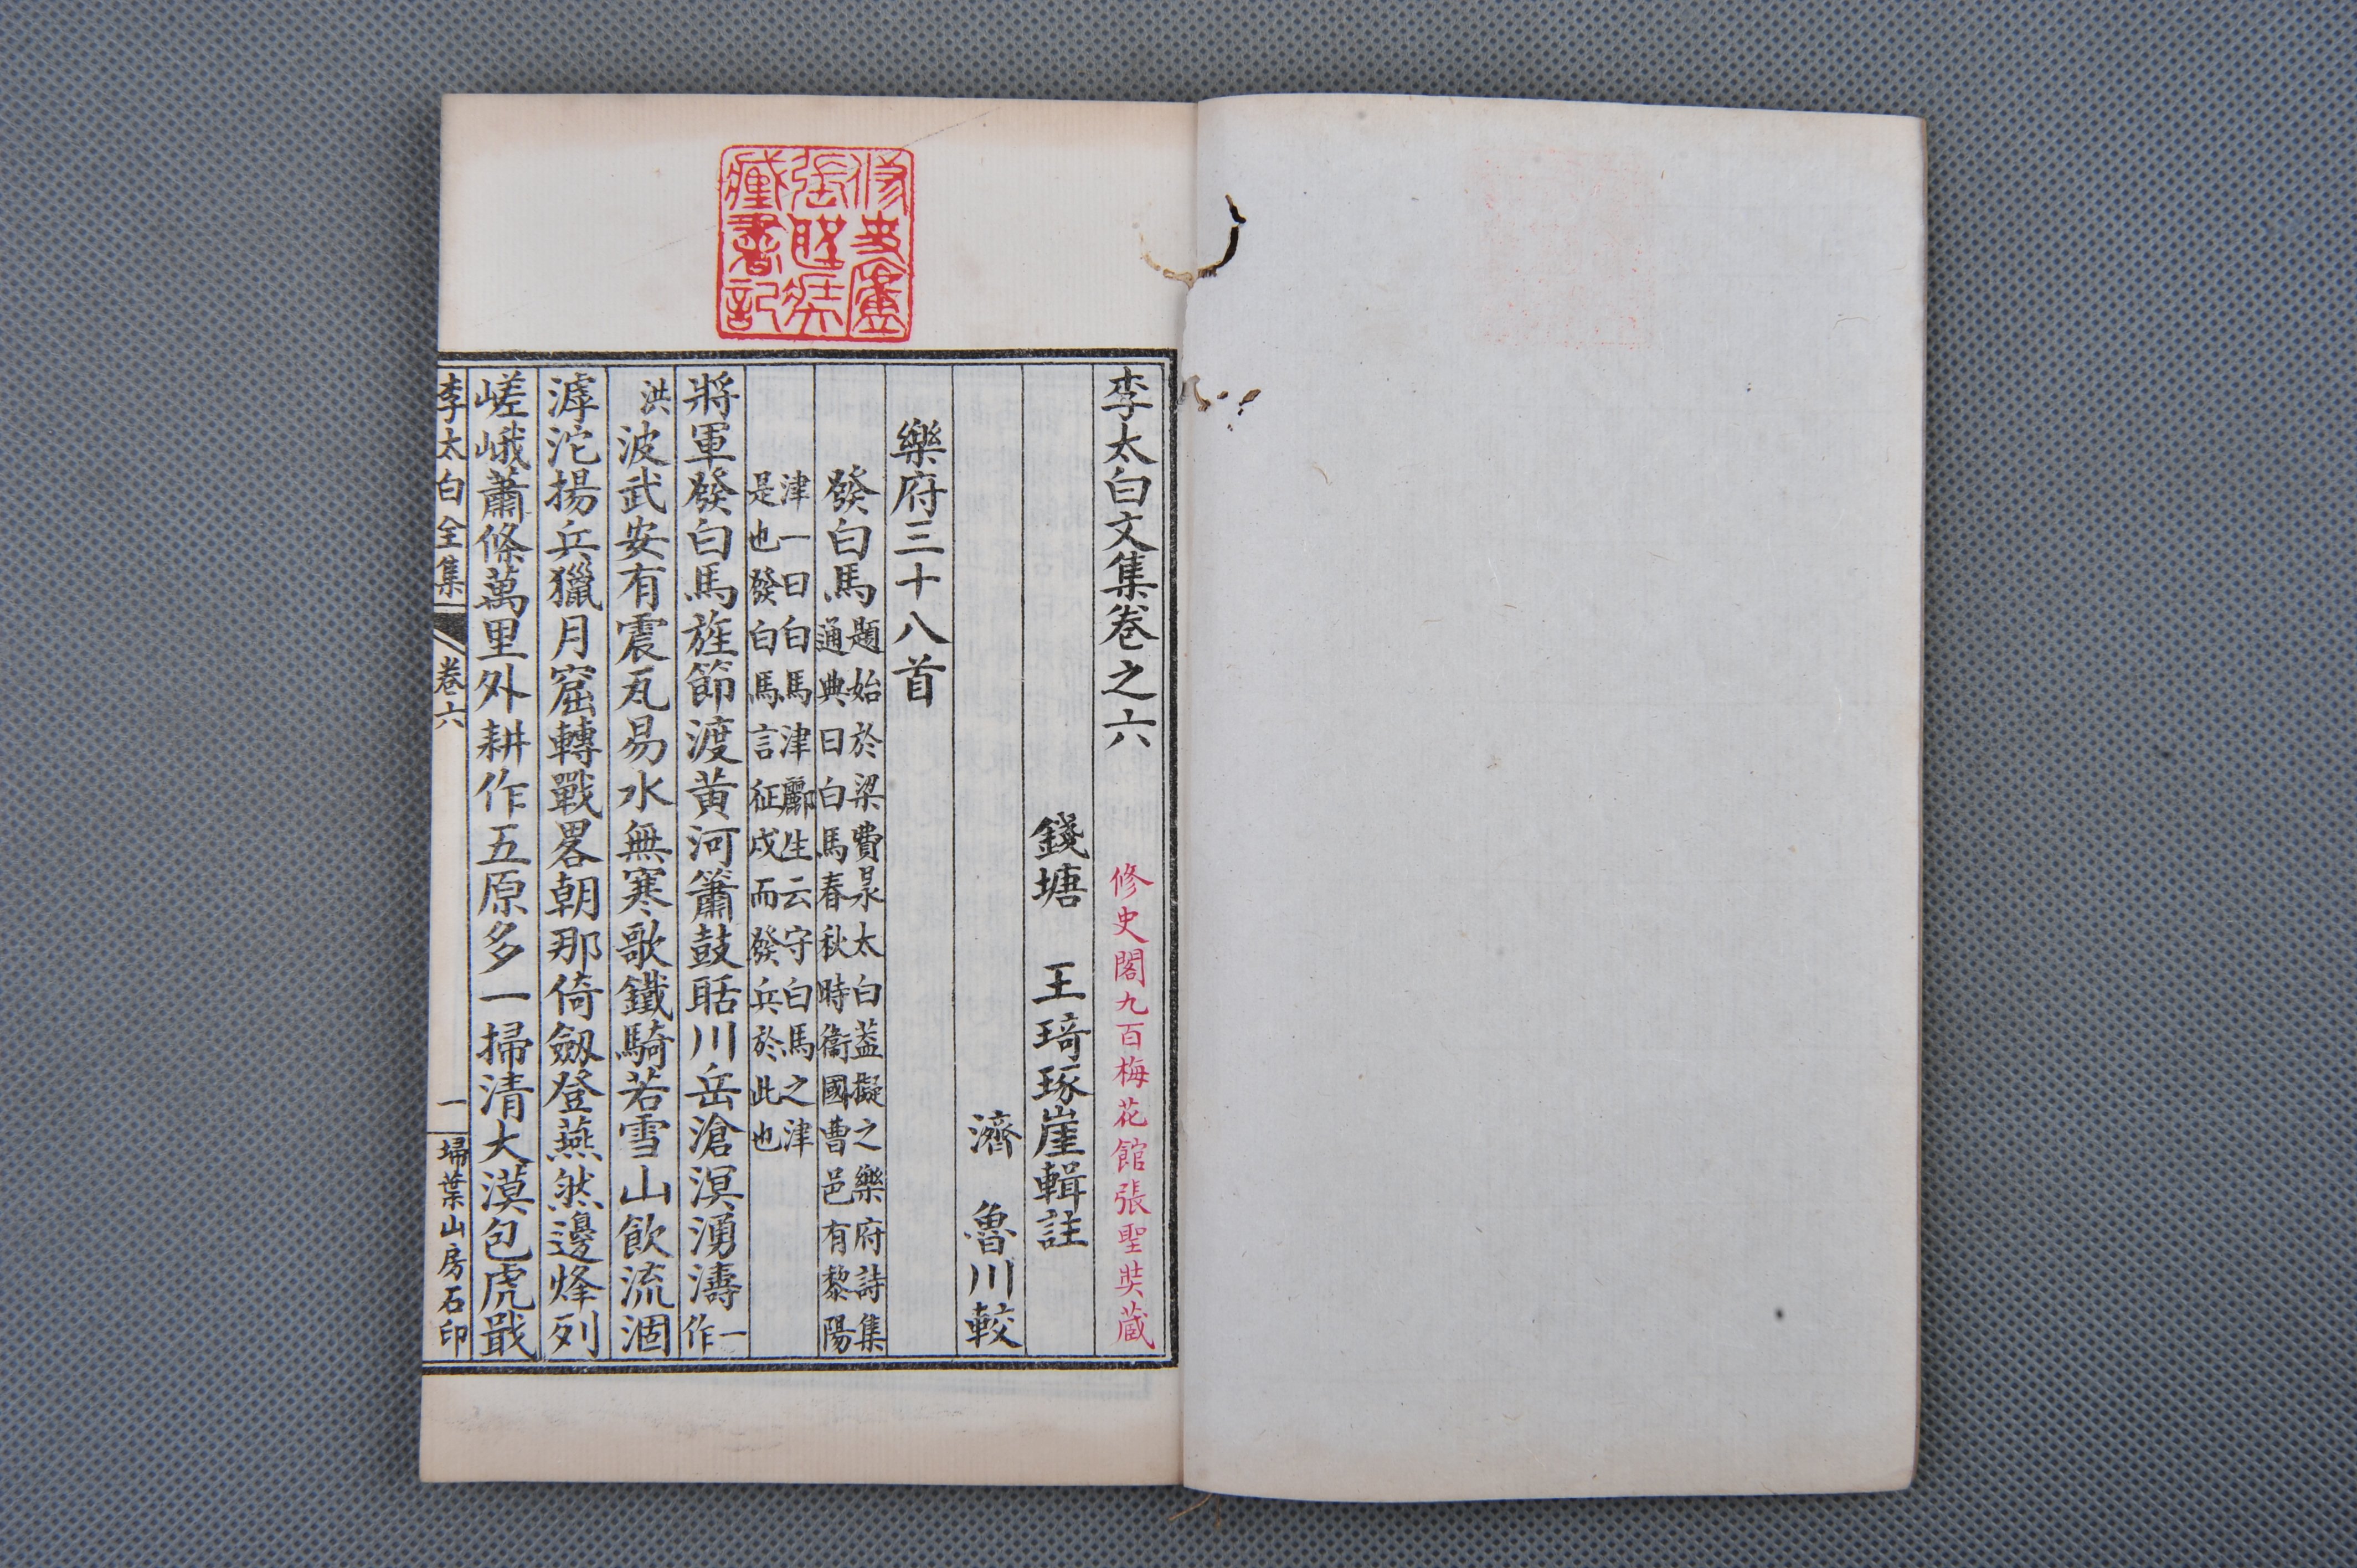 李太白文集卷之六
修史閣九百梅花館張聖奘藏
錢塘　王琦琢崖輯註
濟　魯川較
樂府三十八首
發白馬
題始於梁費昶太白蓋擬之樂府詩集
通典曰白馬春秋時衛國曹邑有黎陽
津一曰白馬津酈生云守白馬之津
是也發白馬言征戍而發兵於此也
將軍發白馬旌節渡黃河簫鼓聒川岳滄溟湧濤
一作
洪
波武安有震瓦易水無寒歌鐵騎若雪山飲流涸
滹沱揚兵獵月窟轉戰畧朝那倚劒登燕然邊烽列
嵯峨蕭條萬里外耕作五原多一掃清大漠包虎戢
李太白全集
卷六
一
埽葉山房石印
修史廬
張聖奘
藏書記